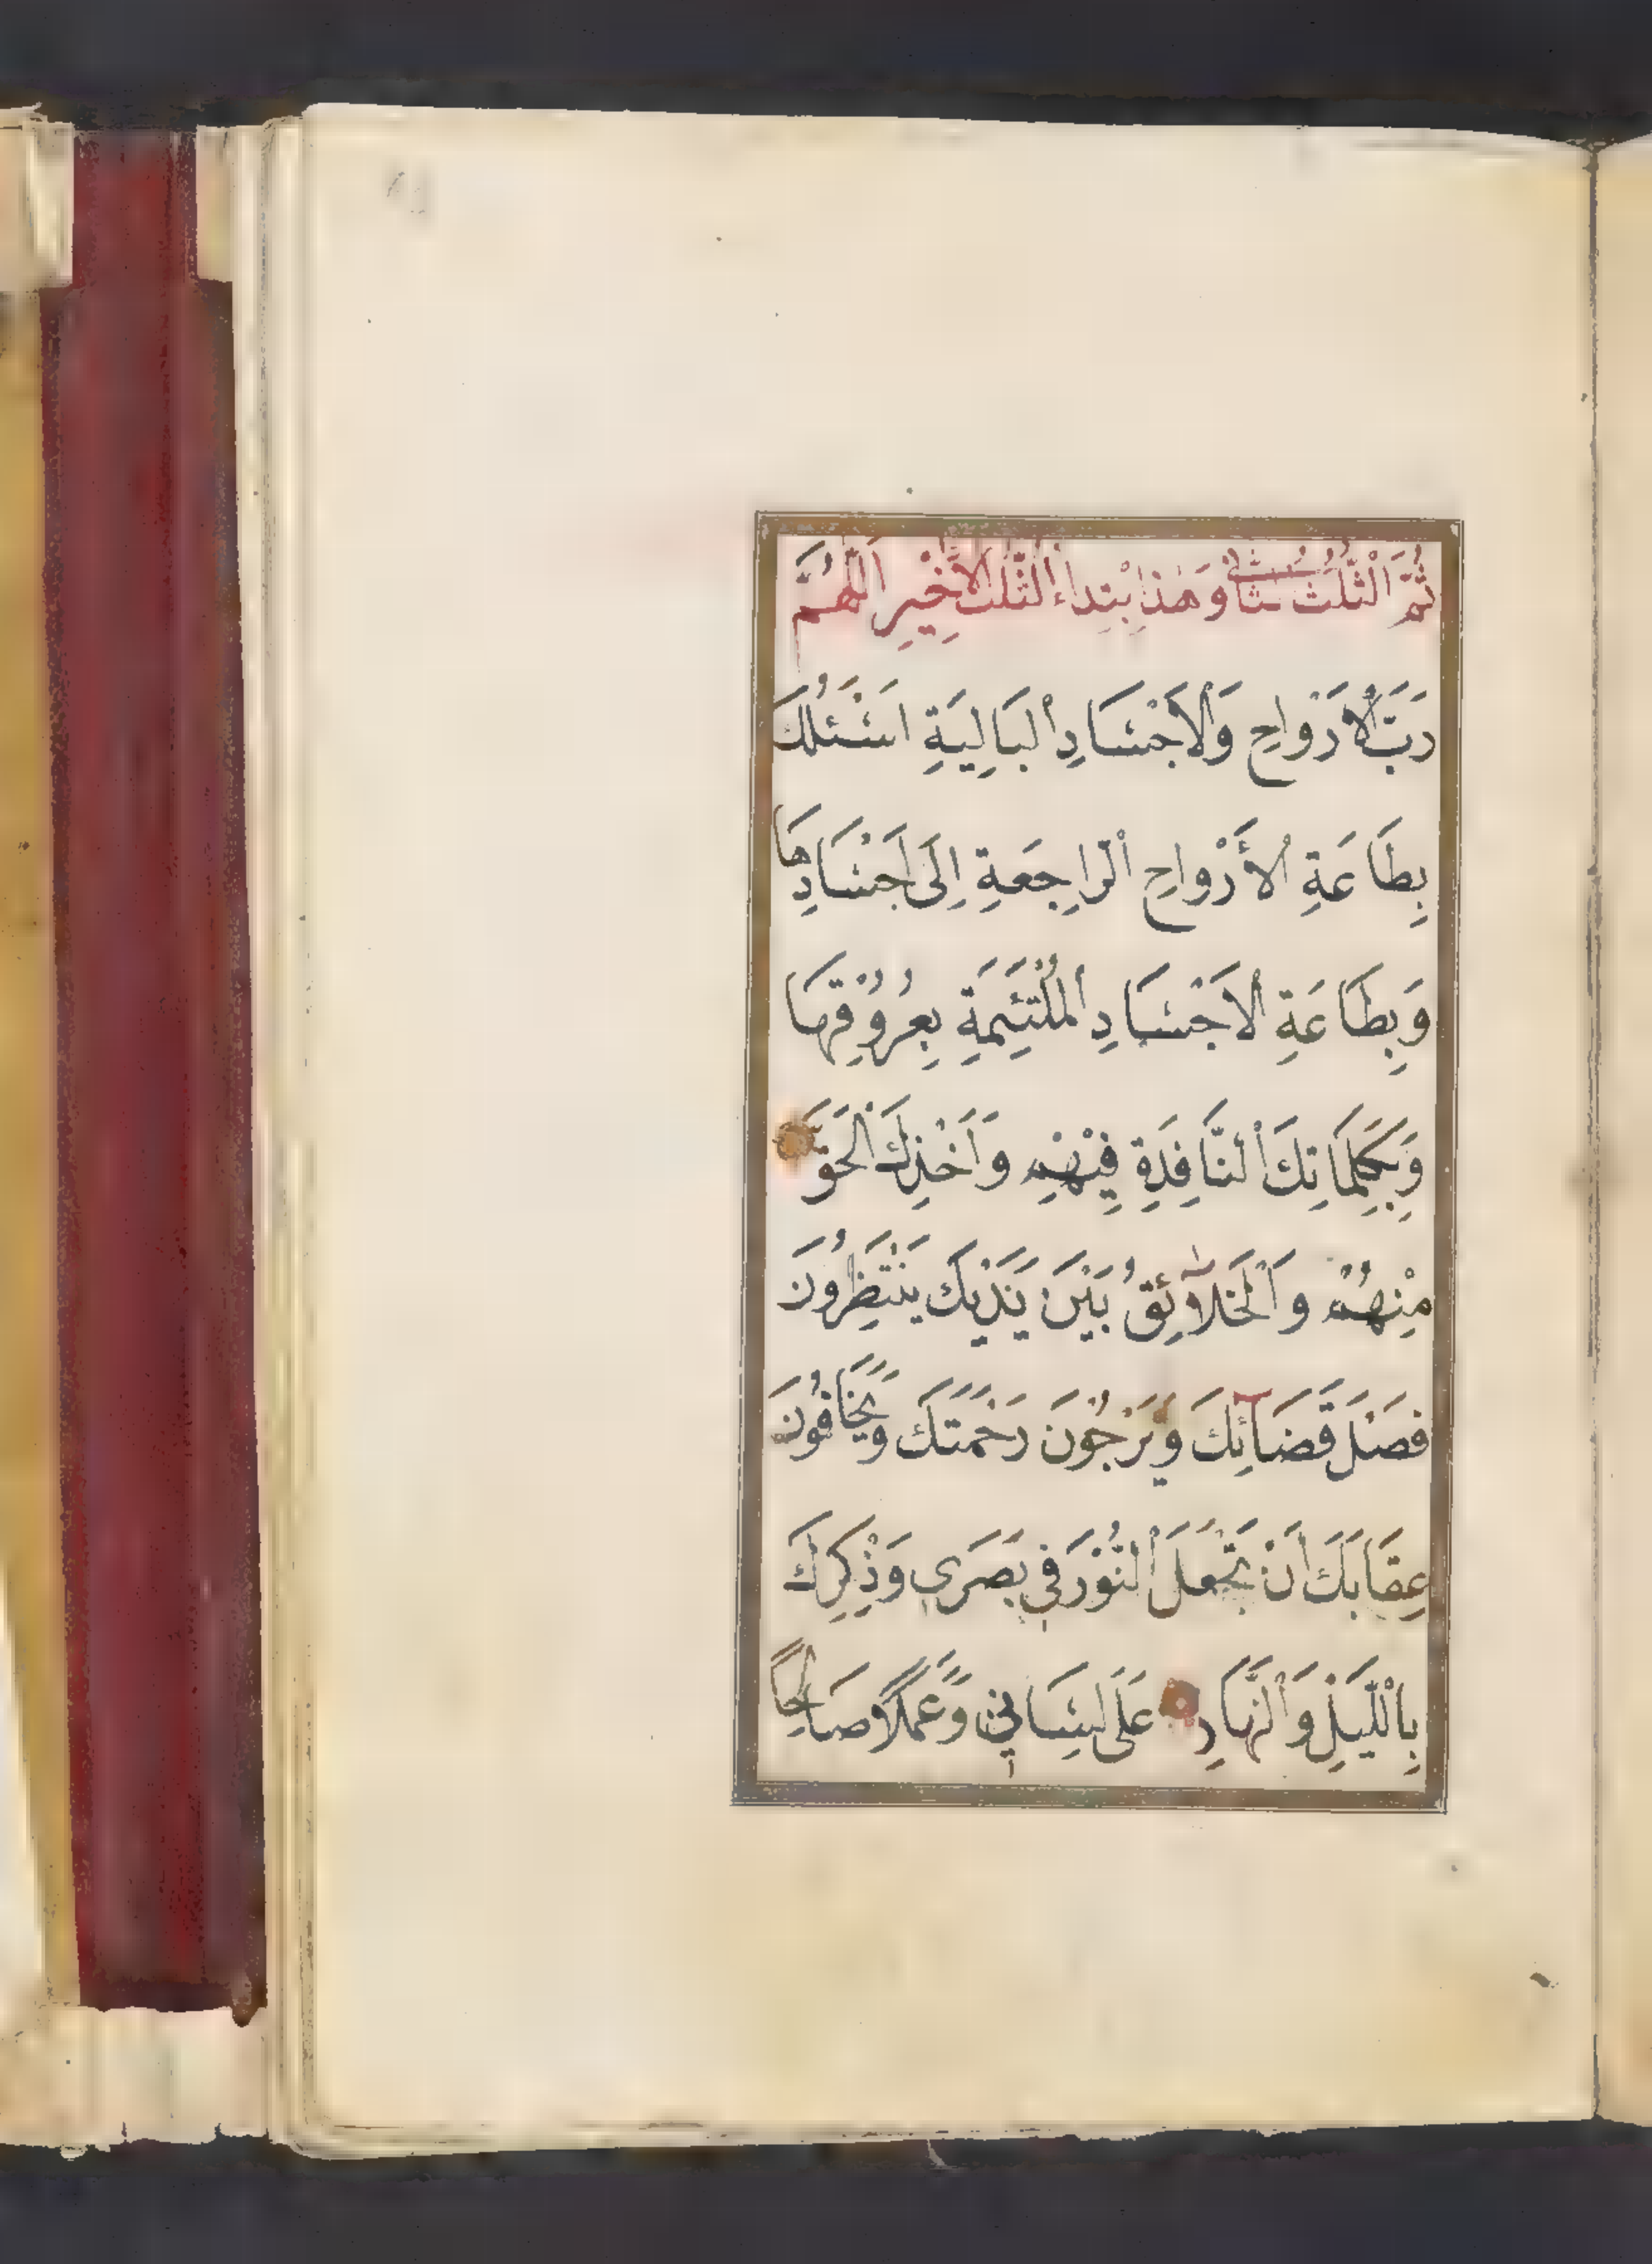 ثُمَّ الْثُّلُثُ الثَّانِی وَهٰذَا بْتِدَاءُ الثُّلُثِ الْاَخِيْرِ اَللّٰهُمَّ
رَبَّ الْاَرْوَاحِ وَالْاَجْسَادِ الْبَالِيَةِ اَسْئَلُكَ
بِطَاعَةِ الْأَرْوَاحِ الرَّاجِعَةِ اِلَى اَجْسَادِهَا
وَبِطَاعَةِ الْاَجْسَادِ الْمُلْتَئِمَةِ بِعُرُوْقِهَا
وَبِكَلِمَاتِكَ النَّافِذَةِ فِيْهِمْ وَاَخْذِكَ الْحَقَّ
مِنْهُمْ وَالْخَلَآئِقُ بَيْنَ يَدَيْكَ يَنْتَظِرُونَ
فَصْلَ قَضَآئِكَ وَيَرْجُوْنَ رَحْمَتَكَ وَيَخَافُوْنَ
عِقَابَكَ اَنْ تَجْعَلَ النُّوْرَ فِی بَصَرِی وَذِكْرِكَ
بِالْلَّيْلِ وَالنَّهَارِ عَلَى لِسَانِی وَعَمَلًا صَالِحًا